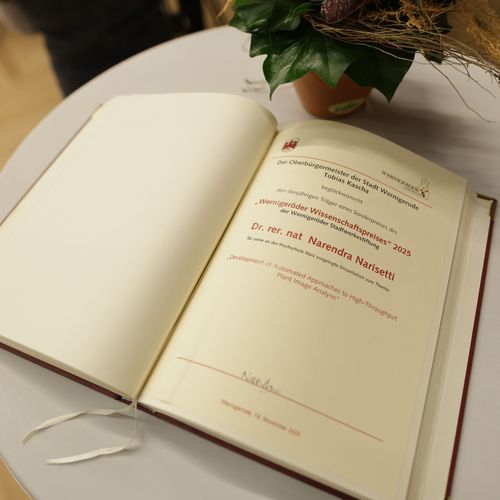 WERNIGERODE
Der Oberbürgermeister der Stadt Wernigerode
Tobias Kascha
beglückwünscht
den diesjährigen Träger eines Sonderpreises des
„Wernigeröder Wissenschaftspreises" 2025
der Wernigeröder Stadtwerkestiftung
Dr. rer. nat Narendra Narisetti
für seine an der Hochschule Harz vorgelegte Dissertation zum Thema:
„Development of Automated Approaches to High-Throughput
Plant Image Analysis"
Wernigerode, 19. November 2025